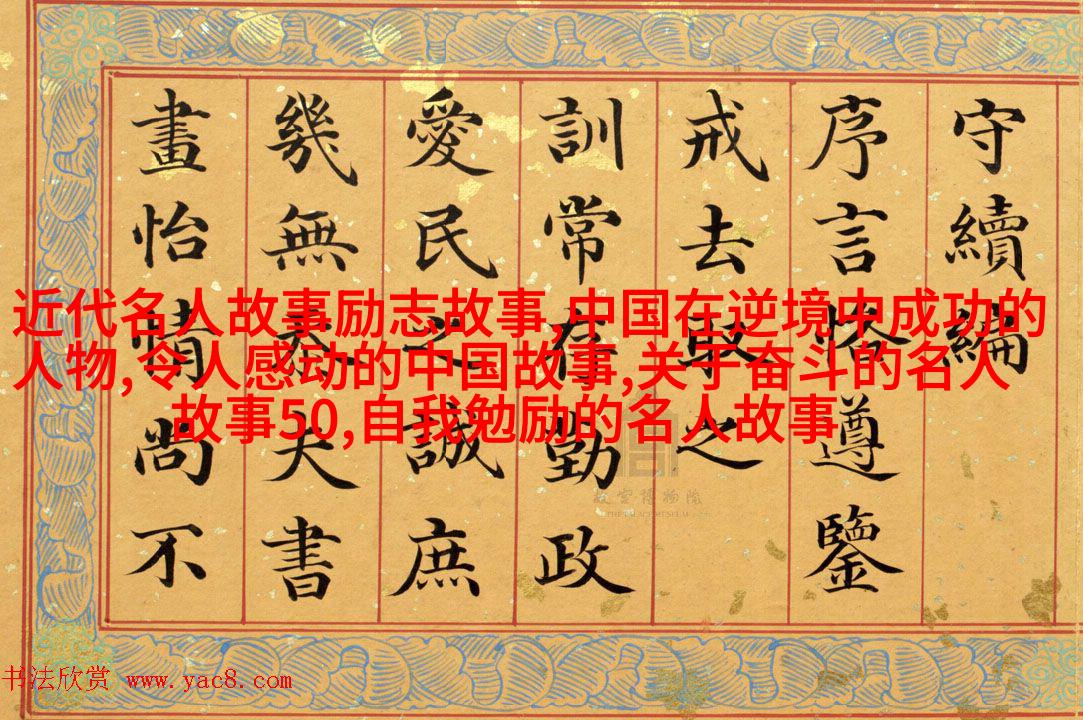 守續編
序言恪遵鑒
戒去取之
訓常存勤政
愛民之誠庶
幾無忝夫書
畫怡情尚不
近代名人故事励志故事,中国在逆境中成功的
人物,令人感动的中国故事,关于奋斗的名人
故事50,自我勉励的名人故事
故宫博物院
THE PALACE MUSEUM
书法欣赏 www.yac8.com